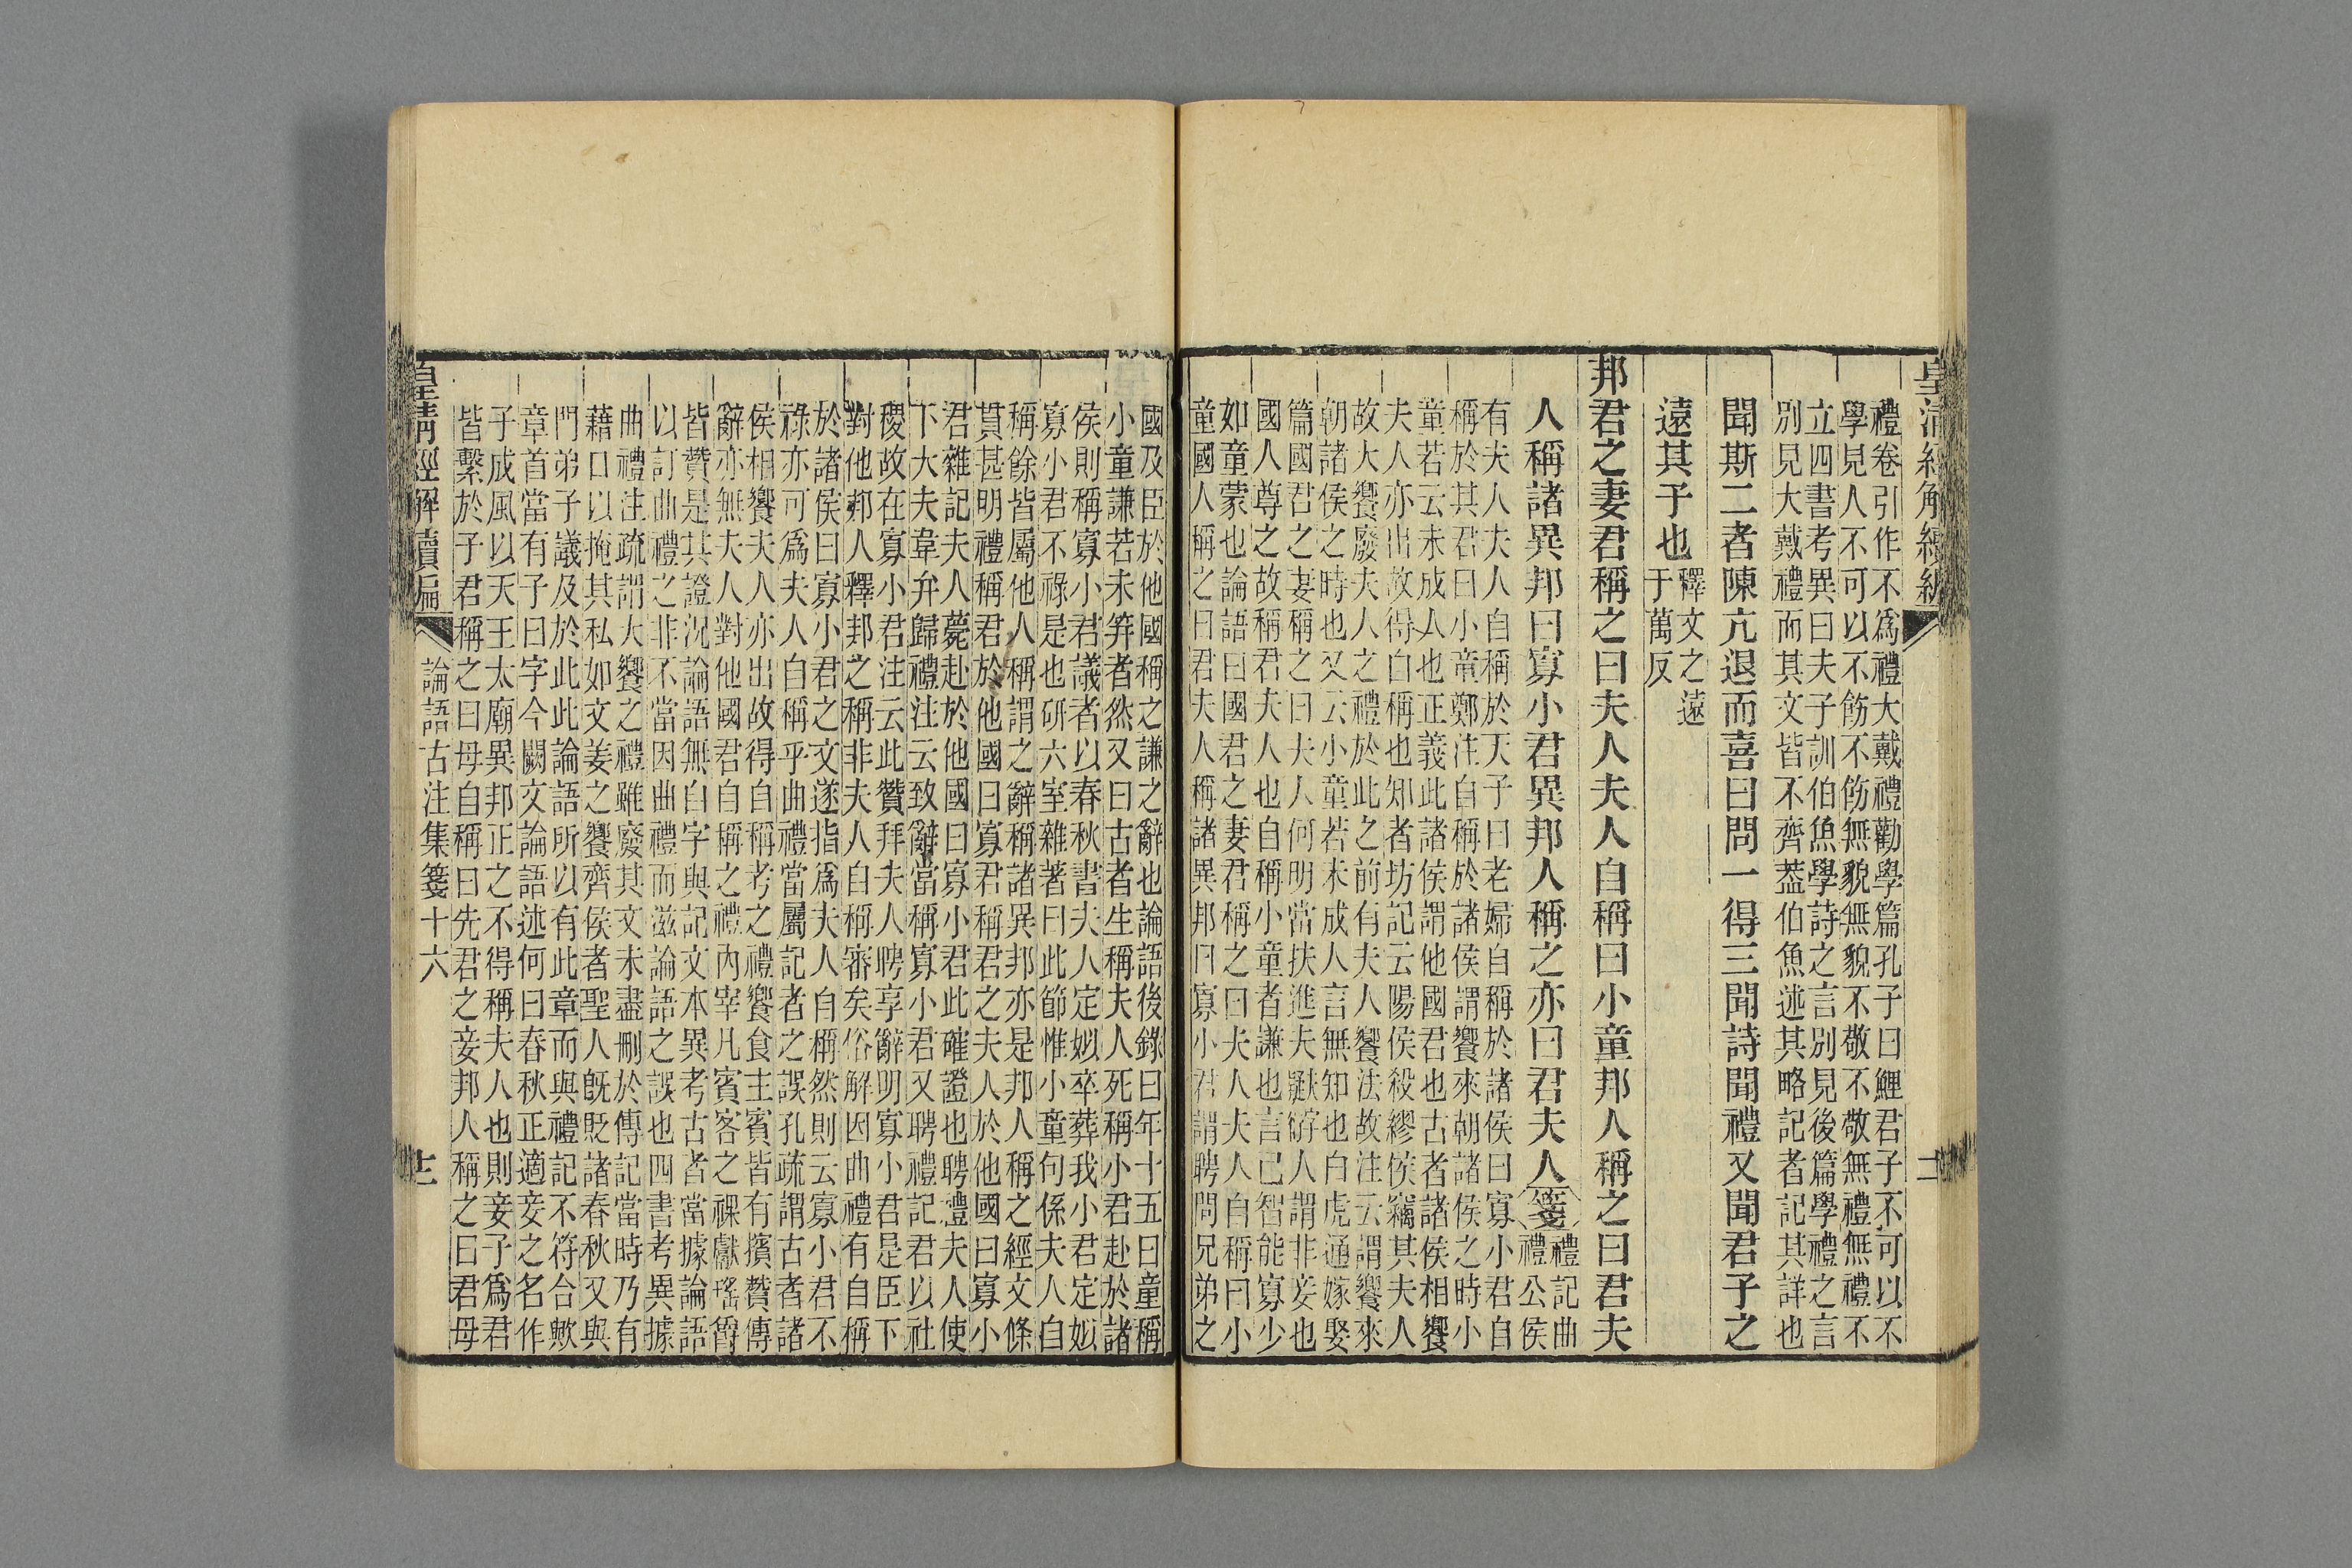 皇清經解續編
禮卷引作不爲禮大戴禮勸學篇孔子曰鯉君子不可以不
學見人不可以不飭不飭無貌無貌不敬不敬無禮無禮不
立四書考異曰夫子訓伯魚學詩之言別見後篇學禮之言
別見大戴禮而其文皆不齊葢伯魚述其略記者記其詳也
聞斯二者陳亢退而喜曰問一得三聞詩聞禮又聞君子之
遠其子也
釋文之遠
于萬反
邦君之妻君稱之曰夫人夫人自稱曰小童邦人稱之曰君夫
人稱諸異邦曰寡小君異邦人稱之亦曰君夫人箋
禮記曲
禮公侯
有夫人夫人自稱於天子曰老婦自稱於諸侯曰寡小君自
稱於其君曰小童鄭注自稱於諸侯謂饗來朝諸侯之時小
童若云未成人也正義此諸侯謂他國君也古者諸侯相饗
夫人亦出故得自稱也知者坊記云陽侯殺繆侯竊其夫人
故大饗廢夫人之禮於此之前有夫人饗法故注云謂饗來
朝諸侯之時也又云小童若未成人言無知也白虎通嫁娶
篇國君之妻稱之曰夫人何明當扶進夫人謂非妾也
國人尊之故稱君夫人也自稱小童者謙也言己智能寡少
如童蒙也論語曰國君之妻君稱之曰夫人夫人自稱曰小
童國人稱之曰君夫人稱諸異邦曰寡小君謂聘問兄弟之
國及臣於他國稱之謙之辭也論語後錄曰年十五曰童稱
小童謙若未笄者然又曰古者生稱夫人死稱小君赴於諸
侯則稱寡小君議者以春秋書夫人定姒卒葬我小君定姒
寡小君不祿是也硏六室雜著曰此節惟小童句係夫人自
稱餘皆屬他人稱謂之辭稱諸異邦亦是邦人稱之經文條
貫甚明禮稱君於他國曰寡君稱君之夫人於他國曰寡小
君雜記夫人薨赴於他國曰寡小君此確證也聘禮夫人使
下大夫韋弁歸禮注云致辭當稱寡小君又聘禮記君以社
稷故在寡小君注云此贊拜夫人聘享辭明寡小君是臣下
對他邦人釋邦之稱非夫人自稱審矣俗解因曲禮有自稱
於諸侯曰寡小君之文遂指爲夫人自稱然則云寡小君不
祿亦可爲夫人自稱乎曲禮當屬記者之誤孔疏謂古者諸
侯相饗夫人亦出故得自稱考之禮饗食主賓皆有擯贊傳
辭亦無夫人對他國君自稱之禮內宰凡賓客之祼獻瑤爵
皆贊是其證況論語無自字與記文本異考古者當據論語
以訂曲禮之非不當因曲禮而滋論語之誤也四書考異據
曲禮注疏謂大饗之禮雖廢其文未盡刪於傳記當時乃有
藉口以掩其私如文姜之饗齊侯者聖人旣貶諸春秋又與
門弟子議及於此此論語所以有此章而與禮記不符合歟
章首當有子曰字今闕文論語述何曰春秋正適妾之名作
子成風以天王太廟異邦正之不得稱夫人也則妾子爲君
皆繫於子君稱之曰母自稱曰先君之妾邦人稱之曰君母
皇清經解續編
論語古注集箋十六